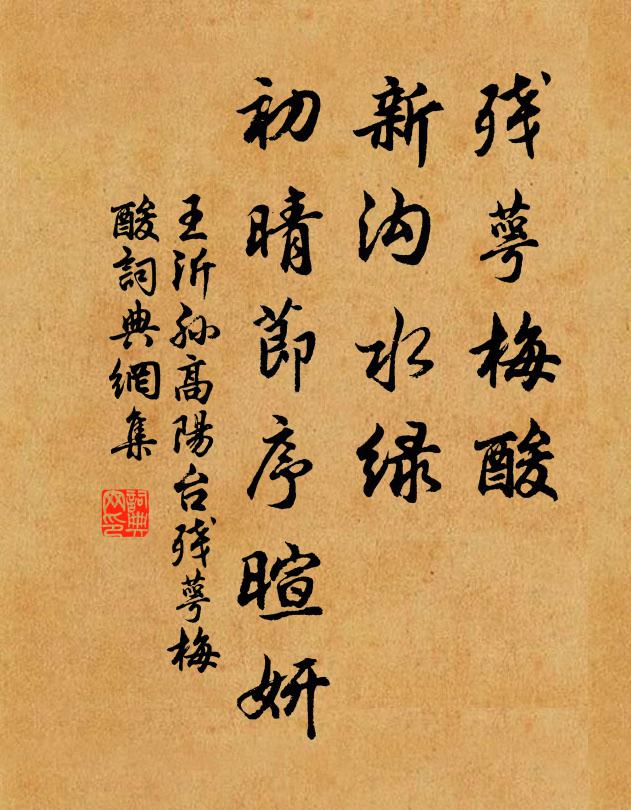 残萼梅酸
新沟水绿
初晴節序暄妍
王沂孙高陽台残萼梅
酸詞典網集
詞典
网印